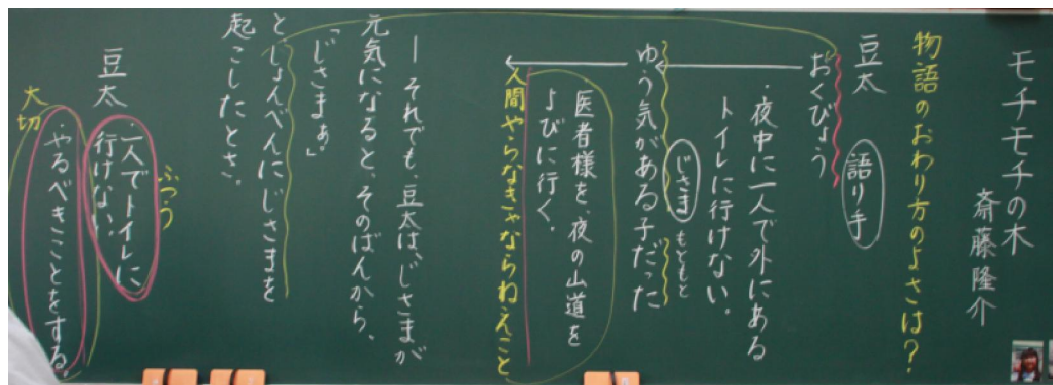 モチモチの木
斎藤隆介
物語のおわり方のよさは？
豆太
語り手
おくびょう
・夜中に一人で外にある
トイレに行けない。
じさま
もともと
ゆう気がある子だった
医者様を、夜の山道を
よびに行く。
人間やらなきゃならねえこと
―それでも、豆太は、じさまが
元気になると、そのばんから、
「じさまぁ」
と、しょんべんにじさまを
起こしたとさ。
豆太
ふつう
・一人でトイレに
行けない。
大切
・やるべきことをする。